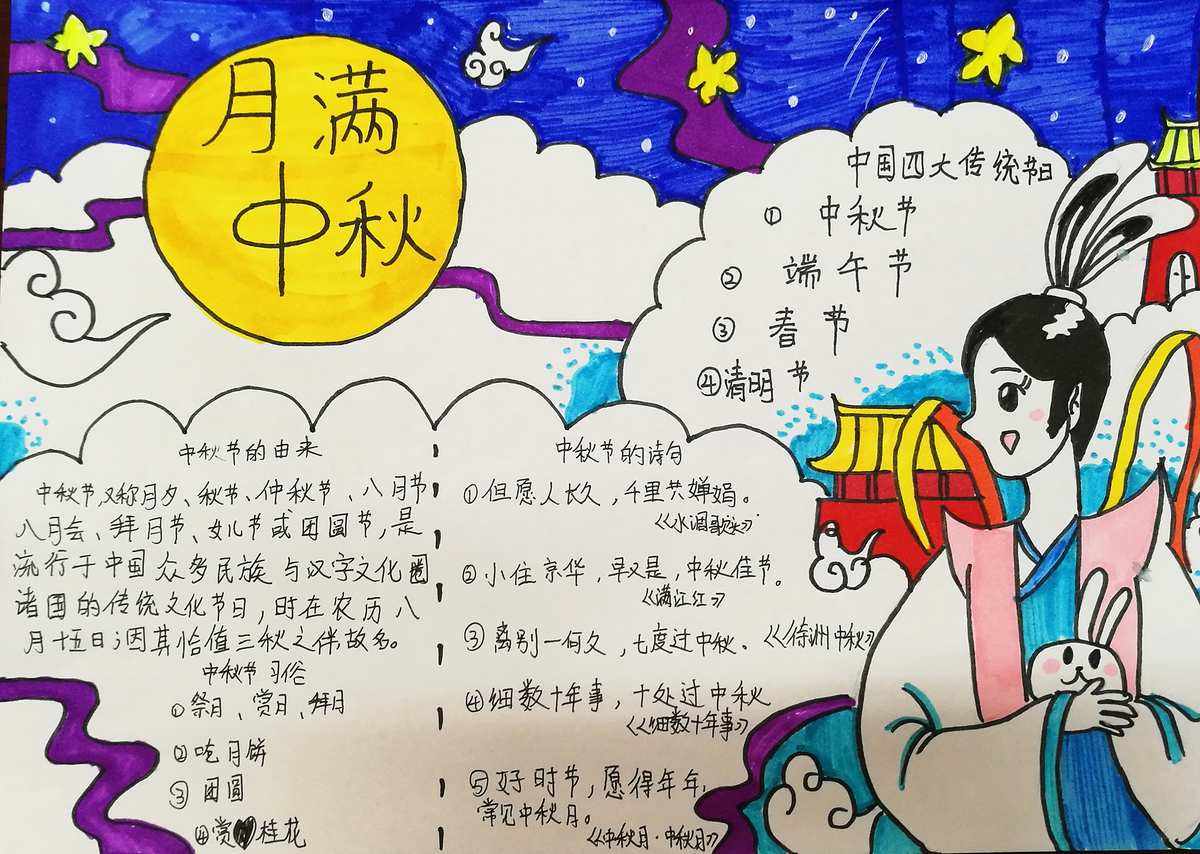 月满
中秋
中国四大传统节日
① 中秋节
② 端午节
③ 春节
④清明节
中秋节的由来
中秋节,又称月夕、秋节、仲秋节、八月节
八月会、拜月节、女儿节或团圆节,是
流行于中国众多民族与汉字文化圈
诸国的传统文化节日,时在农历八
月十五日;因其恰值三秋之伴故名。
中秋节习俗
①祭月、赏月、拜月
②吃月饼
③ 团圆
④赏桂花
中秋节的诗句
①但愿人长久,千里共婵娟。
《水调歌头》
②小住京华,早又是,中秋佳节。
《满江红》
③离别一何久,七度过中秋。《徐州中秋》
④细数十年事,十处过中秋
《细数十年事》
⑤好时节,愿得年年,
常见中秋月。
《中秋月·中秋月》